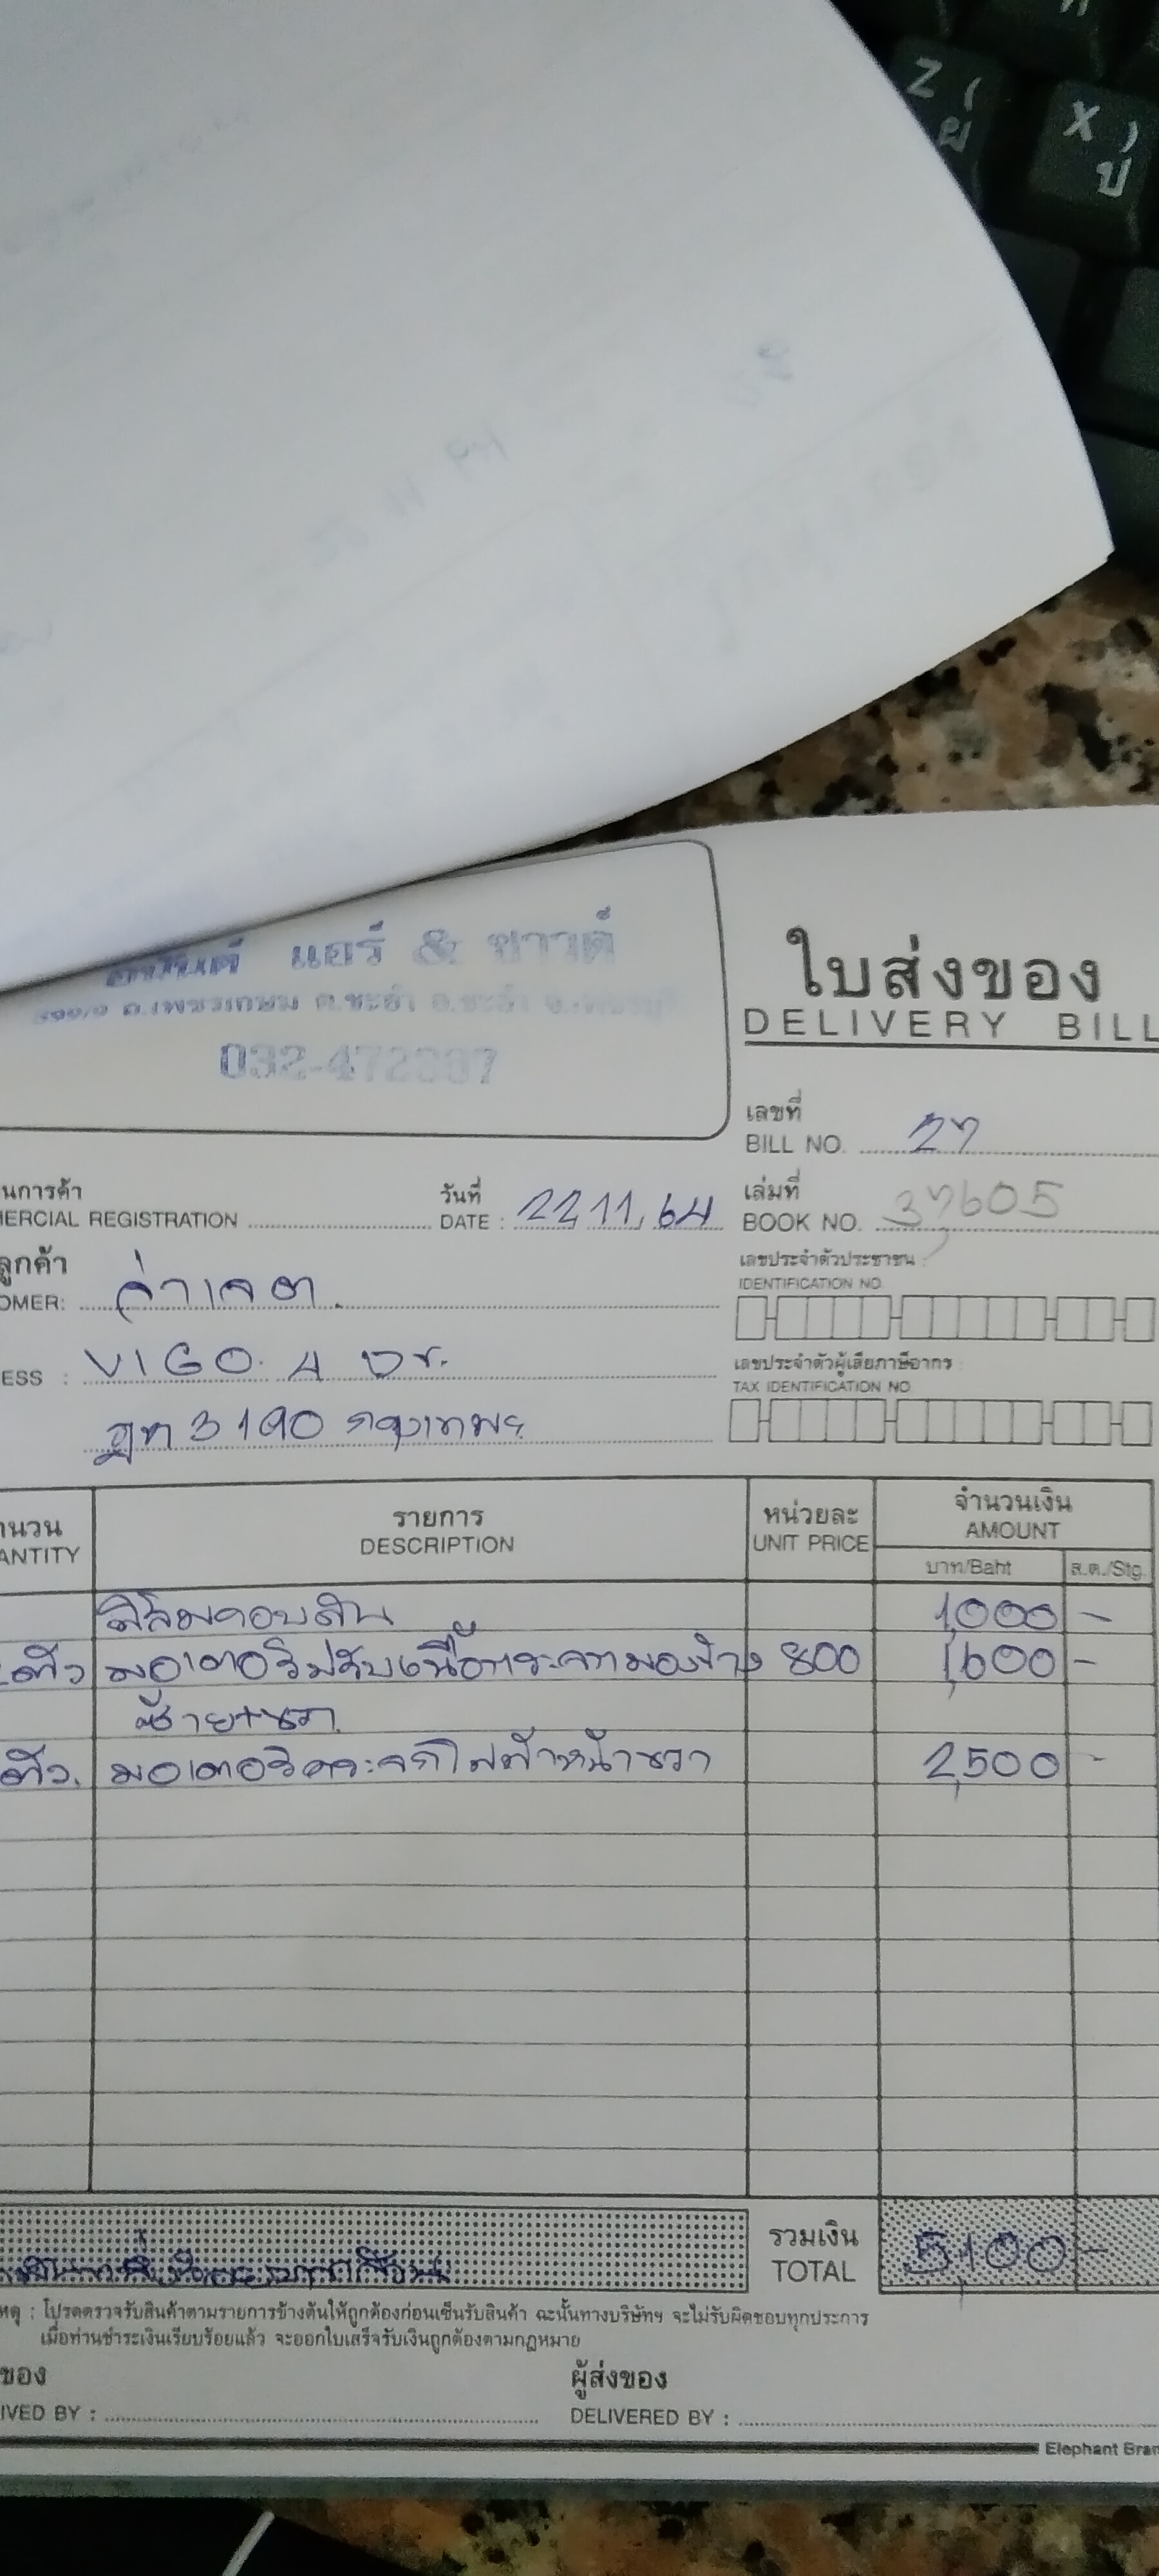 Z (
ผ
X )
ป
แอร์ & ซาวด์
ถ.เพชรเกษม ต.ชะอำ อ.ชะอำ จ.เพชรบุรี
032-472
ใบส่งของ
DELIVERY BILL
เลขที่
BILL NO. 27
นการค้า
MERCIAL REGISTRATION
วันที่
DATE : 22,11,64
เล่มที่
BOOK NO. 37605
ลูกค้า
OMER: จ่าเจต
เลขประจำตัวประชาชน :
IDENTIFICATION NO.
ESS : VIGO. 4 Dr.
เลขประจำตัวผู้เสียภาษีอากร :
TAX IDENTIFICATION NO.
3190 กรุงเทพฯ
านวน
ANTITY
รายการ
DESCRIPTION
หน่วยละ
UNIT PRICE
จำนวนเงิน
AMOUNT
บาท/Baht
ส.ต./Stg.
1,000 -
ตัว มอเตอร์ปรับเนื้อกระจกมองข้าง 800 1,600 -
ซ้าย+ขวา
ตัว. มอเตอร์กระจกไฟฟ้าหน้าขวา 2,500 -
รวมเงิน
TOTAL
5,100 -
หตุ : โปรดตรวจรับสินค้าตามรายการข้างต้นให้ถูกต้องก่อนเซ็นรับสินค้า ฉะนั้นทางบริษัทฯ จะไม่รับผิดชอบทุกประการ
เมื่อท่านชำระเงินเรียบร้อยแล้ว จะออกใบเสร็จรับเงินถูกต้องตามกฎหมาย
ของ
IVED BY :
ผู้ส่งของ
DELIVERED BY :
Elephant Bran